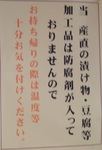 当 産直の漬け物・豆腐等
加工品は防腐剤が入って
おりませんので
お持ち帰りの際は温度等
十分お気を付けください。